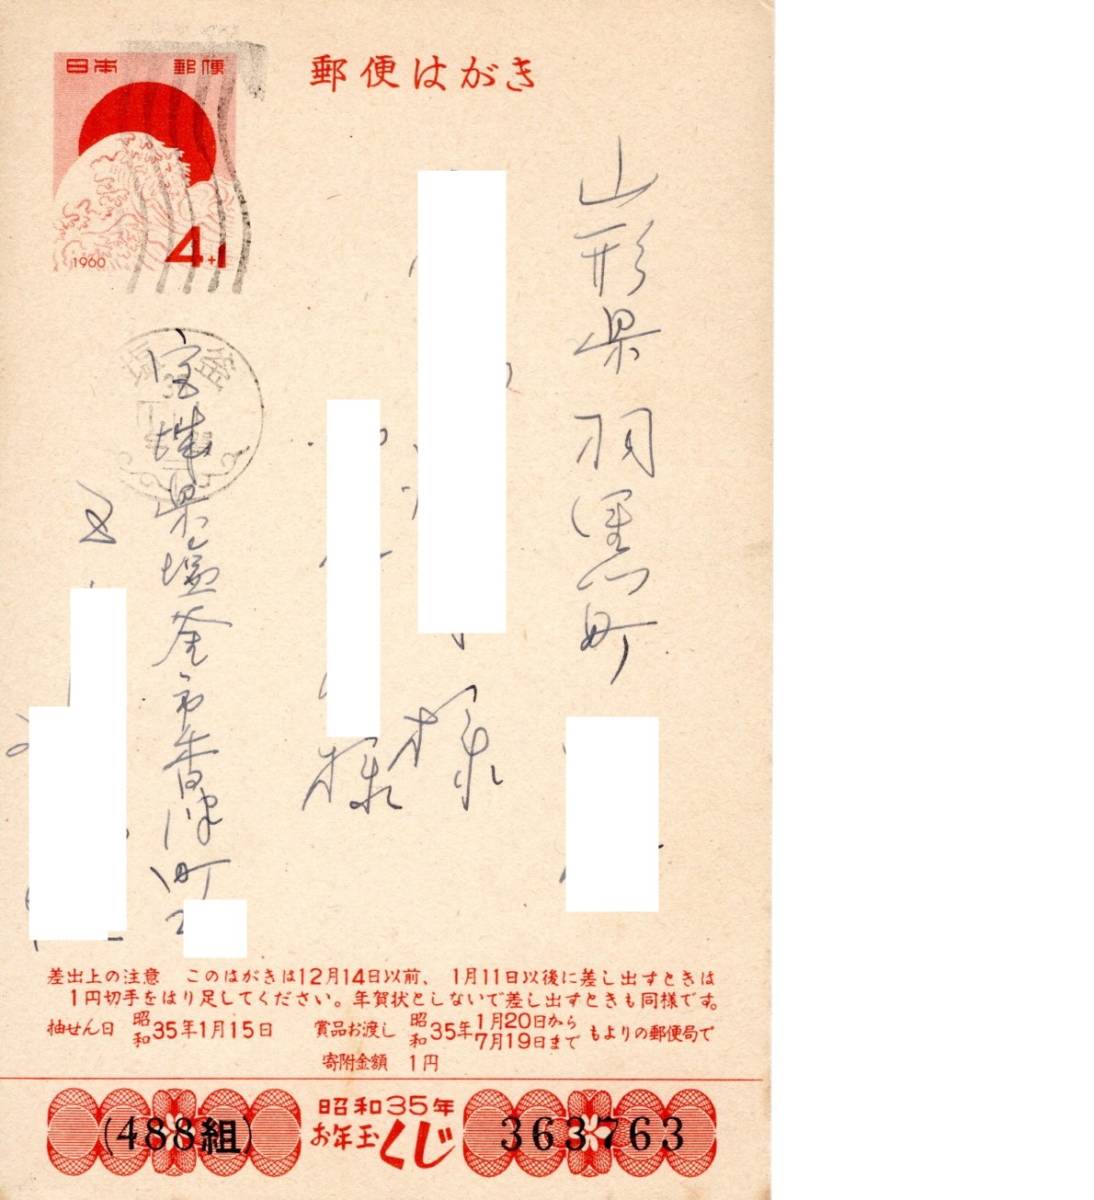 郵便はがき
日本 郵便
1960
4+1
山形県羽黒町
様
様
宮城県塩釜市香津町
差出上の注意 このはがきは12月14日以前、1月11日以後に差し出すときは
1円切手をはり足してください。年賀状としないで差し出すときも同様です。
抽せん日 昭和35年1月15日 賞品お渡し 昭和35年1月20日から7月19日まで もよりの郵便局で
寄附金額 1円
昭和35年
お年玉くじ
(488組)
363763